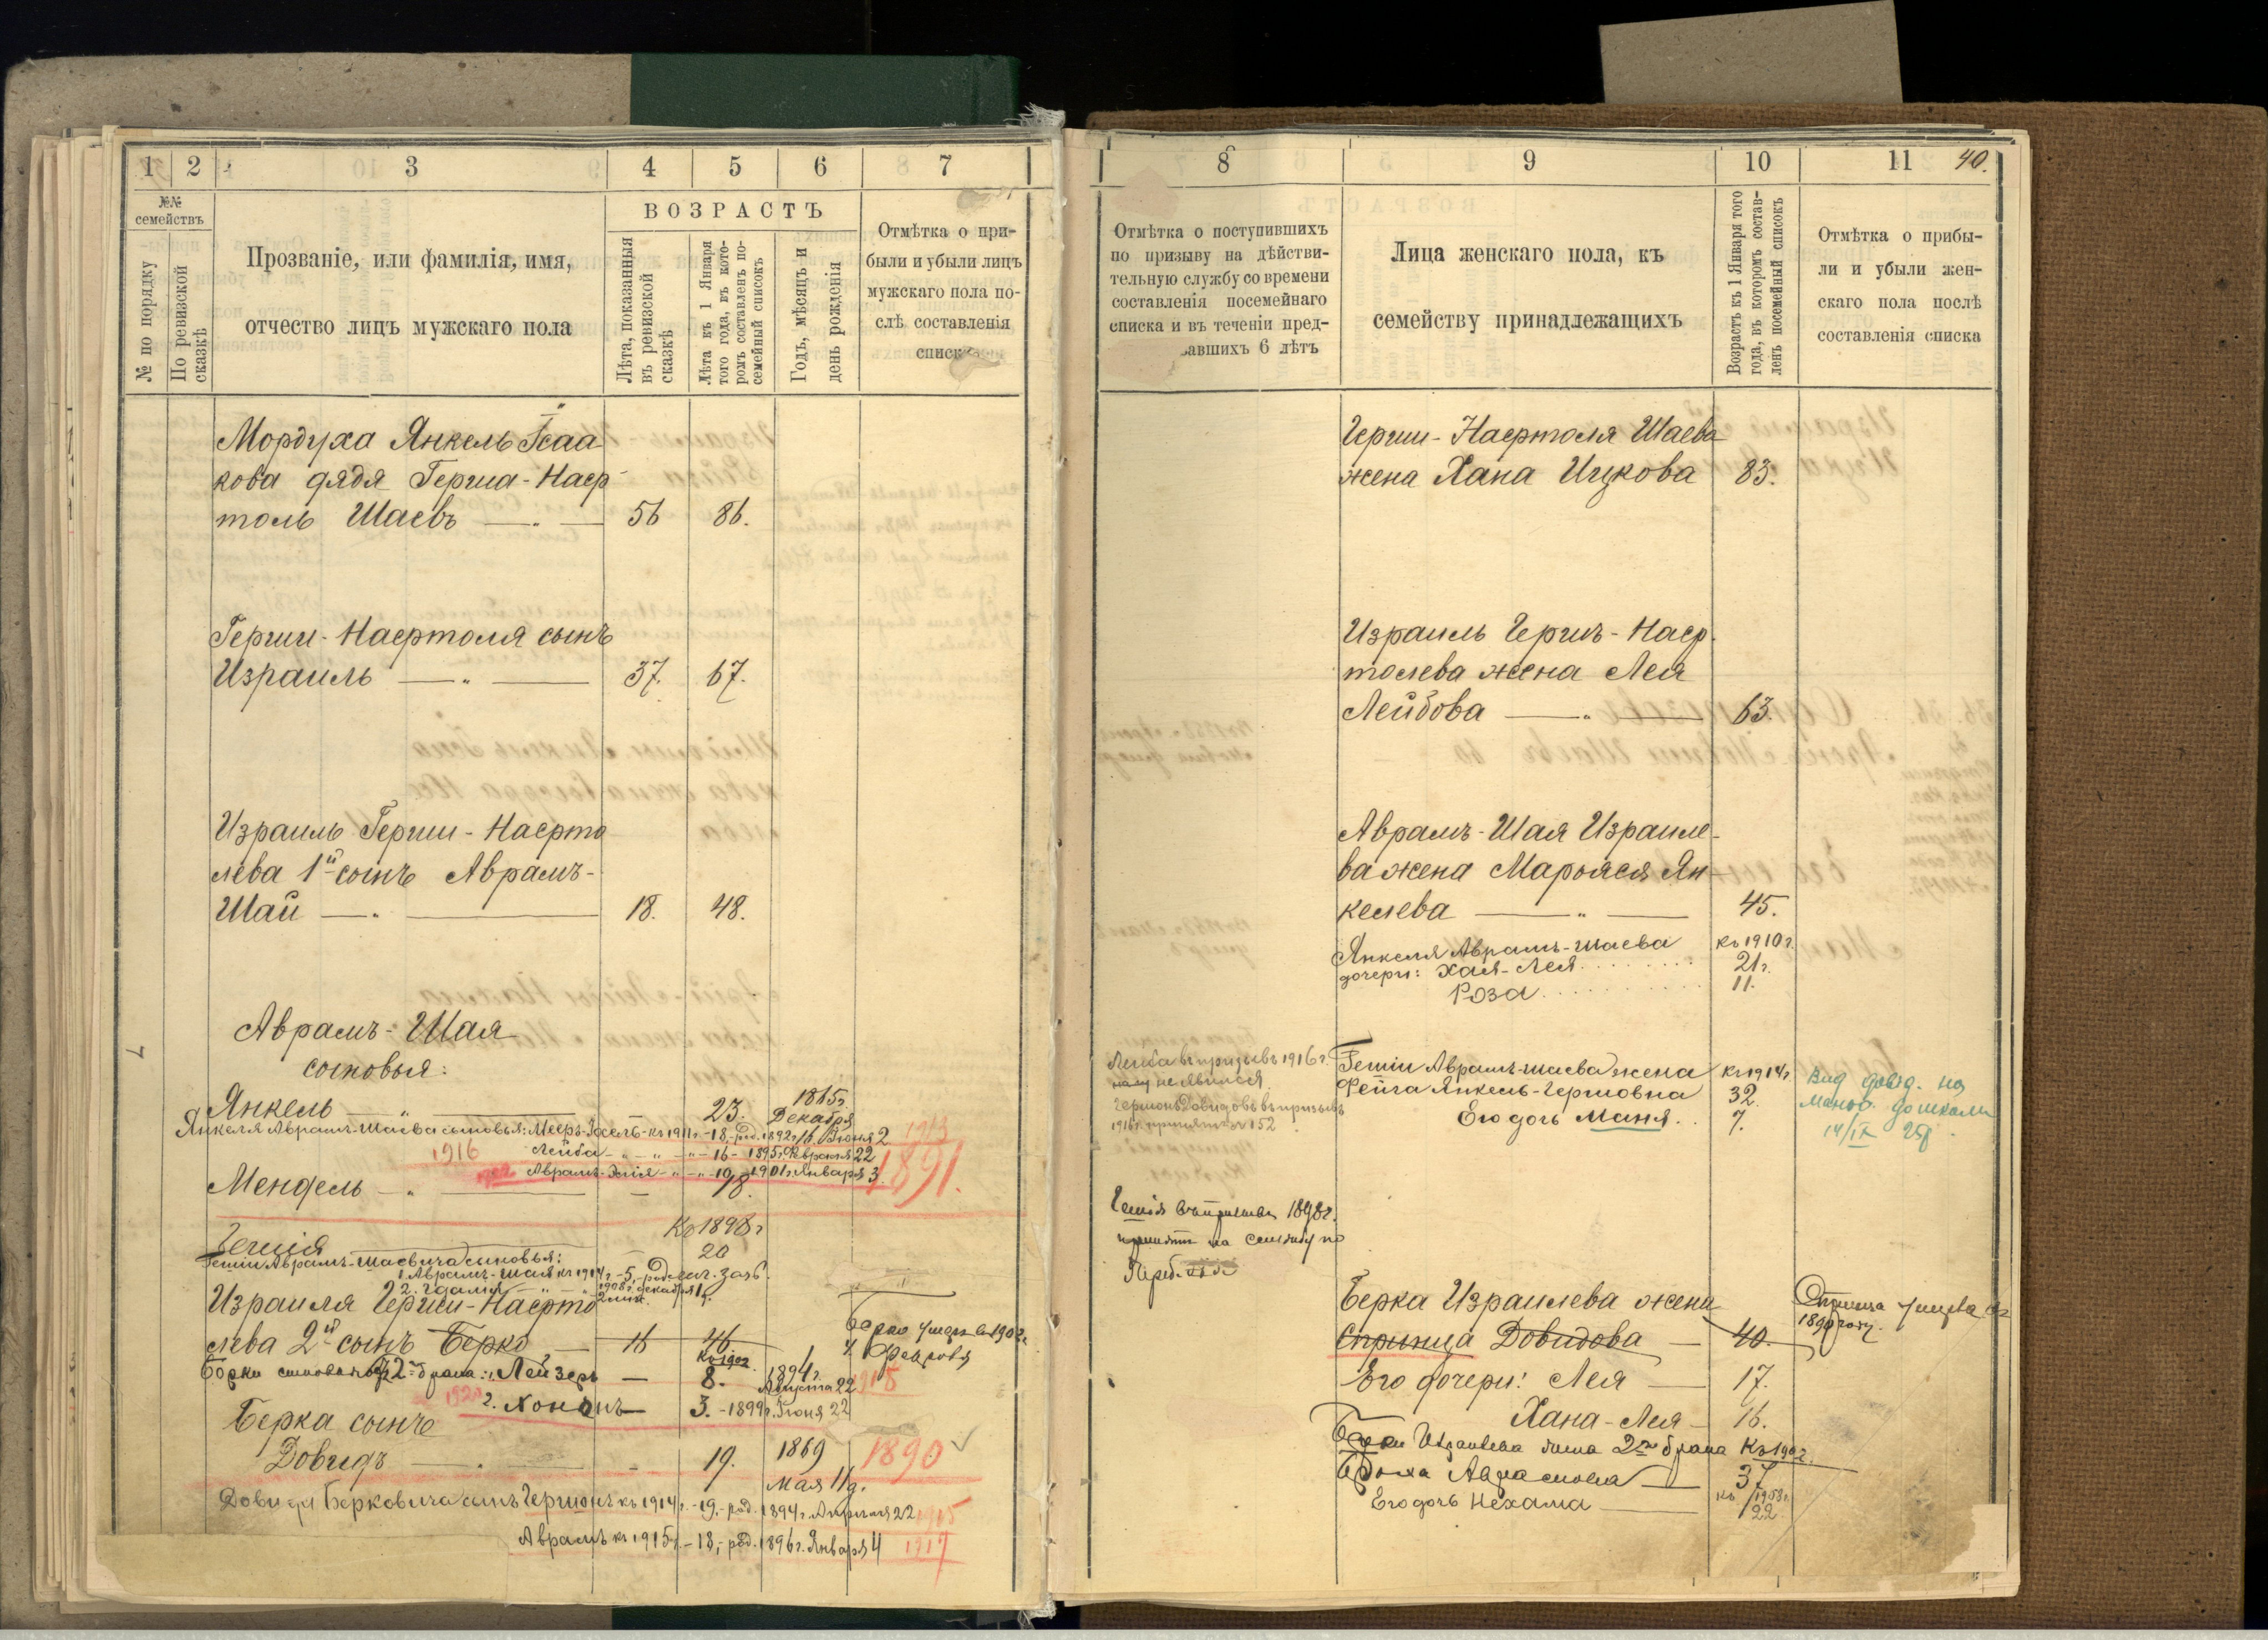 1 2 3 4 5 6 7
№№ семействъ
№ по порядку
По ревизской сказкѣ
Прозваніе, или фамилія, имя,
отчество лицъ мужскаго пола
ВОЗРАСТЪ
Лѣта, показанныя
въ ревизской
сказкѣ
Лѣта къ 1 Января
того года, въ кото-
ромъ составленъ по-
семейный списокъ
Годъ, мѣсяцъ и
день рожденія
Отмѣтка о при-
были и убыли лицъ
мужскаго пола по-
слѣ составленія
списка
Мордуха Янкель Ісаа-
кова дядя Герша-Наер-
толь Шаевъ 56 86.
Герши-Наертоля сынъ
Израиль 37. 67.
Израиль Герши-Наерто
лева 1й сынъ Аврамъ-
Шай 18. 48.
Аврамъ-Шая
сыновья:
Янкель 23. 1865г Декабря
Янкеля Аврамъ-Шаева сыновья: Мееръ-Іосель-къ 1911г.-18,-род. 1892г. Іюня 2 1913
1916 Лейба - 16 - 1895г. Февраля 22
1922 Аврамъ-Элія - 10, - 1901г. Января 3.
Мендель 18. 1891.
Къ 1898г
Гешія 20
Гешіи Аврамъ-Шаевича сыновья:
1. Аврамъ-Шая къ 1914г.-5,-род.
1908г. декабря 1
Израиля Герши-Наерто
лева 2й сынъ Берко 16 46
Берко умеръ въ 1902г.
4 Февраля
Берки сыновья отъ 2го брака: 1. Лейзеръ къ 1902 8. 1894г. Августа 22 1915
1920 2. Хононъ 3. - 1899г. Іюня 22
Берка сынъ
Довидъ 19. 1869 мая 11д. 1890
Довида Берковича сынъ Гершонъ къ 1914г.-19,-род. 1894г. Апреля 22 1915
Аврамъ къ 1915г.-18,-род. 1896г. Января 4 1917
8 9 10 11 40.
Отмѣтка о поступившихъ
по призыву на дѣйстви-
тельную службу со времени
составленія посемейнаго
списка и въ теченіи пред-
авшихъ 6 лѣтъ
Лица женскаго пола, къ
семейству принадлежащихъ
Возрастъ къ 1 Января того
года, въ которомъ состав-
ленъ посемейный списокъ
Отмѣтка о прибы-
ли и убыли жен-
скаго пола послѣ
составленія списка
Герши-Наертоля Шаева
жена Хана Ицкова 83.
Израиль Гершъ-Наер-
толева жена Лея
Лейбова 63.
Аврамъ-Шая Израиле-
ва жена Марьяся Ян-
келева 45.
Янкеля Аврамъ-Шаева къ 1910г.
дочери: Хая-Лея 21г.
Роза 11.
Лейба въ призывъ 1916г.
не явился.
Гершонъ Довидовъ въ призывъ
1916г. принятъ № 152
Гешіи Аврамъ-Шаева жена къ 1914г.
Фейга Янкель-Гершовна 32.
Его дочь Маня 7.
Вид. довід. на
14/IX 25р.
Гешія въ призывъ 1898г.
принятъ на службу по
Берка Израилева жена
Сприцца Довидова 40.
Сприцца умерла въ
1890 году.
Его дочери: Лея 17.
Хана-Лея 16.
Берки Израилева жена 2го брака къ 1902г.
Броха Абрамова 37
Его дочь Нехама къ 1908г. 22